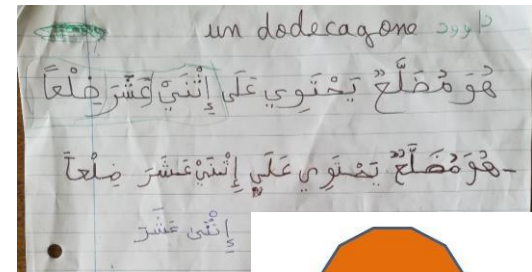 un dodecagone داوود
هُوَ مُضَلَّعٌ يَحْتَوِي عَلَى إِثْنَيْ عَشَرَ ضِلْعاً
-هُوَ مُضَلَّعٌ يَحْتَوِي عَلَى إِثْنَيْ عَشَرَ ضِلْعاً
إِثْنَى عَشَرَ